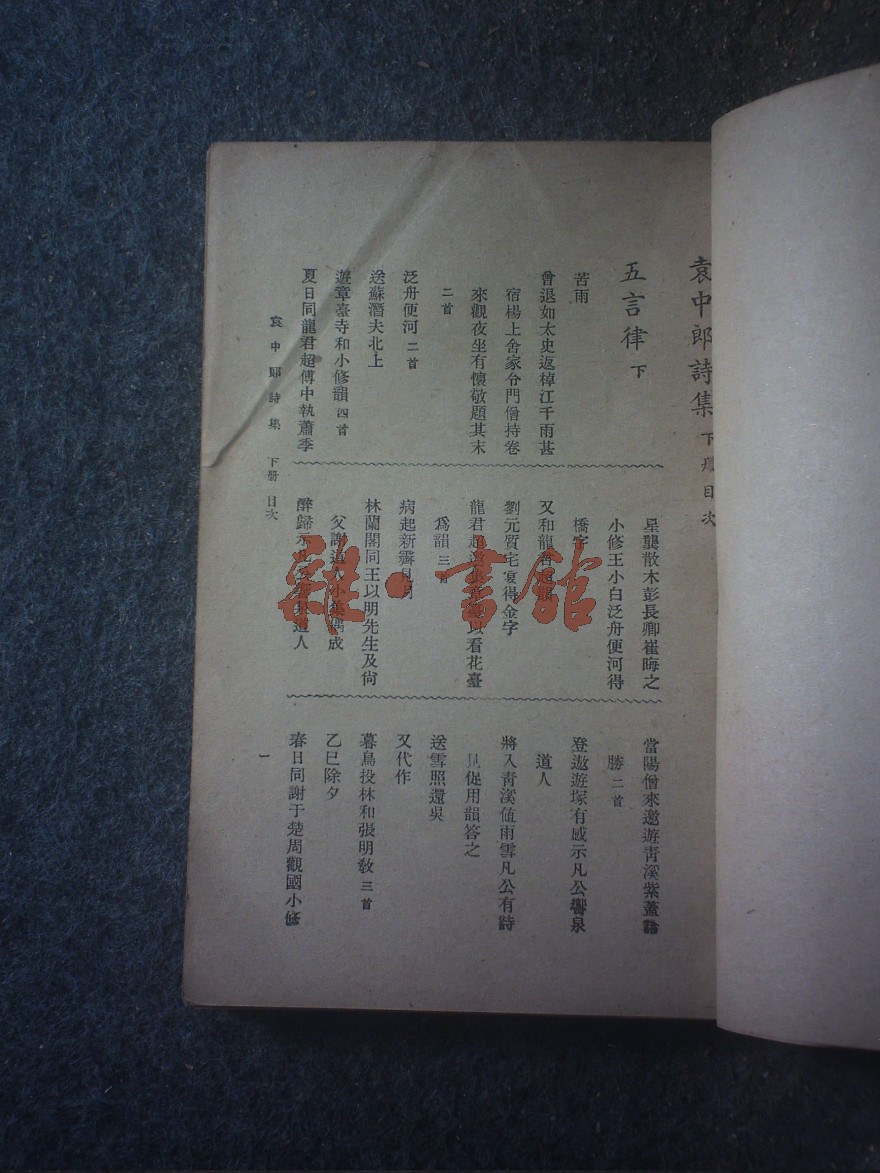 袁中郎詩集 下册 目次
五言律 下
苦雨
曾退如太史返棹江干雨甚
宿楊上舍家分門僧持卷
來觀夜坐有懷敬題其末
二首
泛舟便河 二首
送蘇潛夫北上
遊章臺寺和小修韻 四首
夏日同龍君超傅中執蕭季
星龔散木彭長卿崔晦之
小修王小白泛舟便河得
橋字
又和龍君超韻
劉元質宅宴得金字
龍君超邀以看花臺
爲韻 三首
病起新霽見月
林蘭閣同王以明先生及尙
父謝道人小集偶成
醉歸示道人
當陽僧來邀遊靑溪紫蓋諸
勝 二首
登遨遊塚有感示凡公響泉
道人
將入靑溪値雨雪凡公有詩
見促用韻答之
送雪照還吳
又代作
暮鳥投林和張明敎 三首
乙巳除夕
春日同謝于楚周觀國小修
袁中郎詩集 下册 目次
一
雜·書館